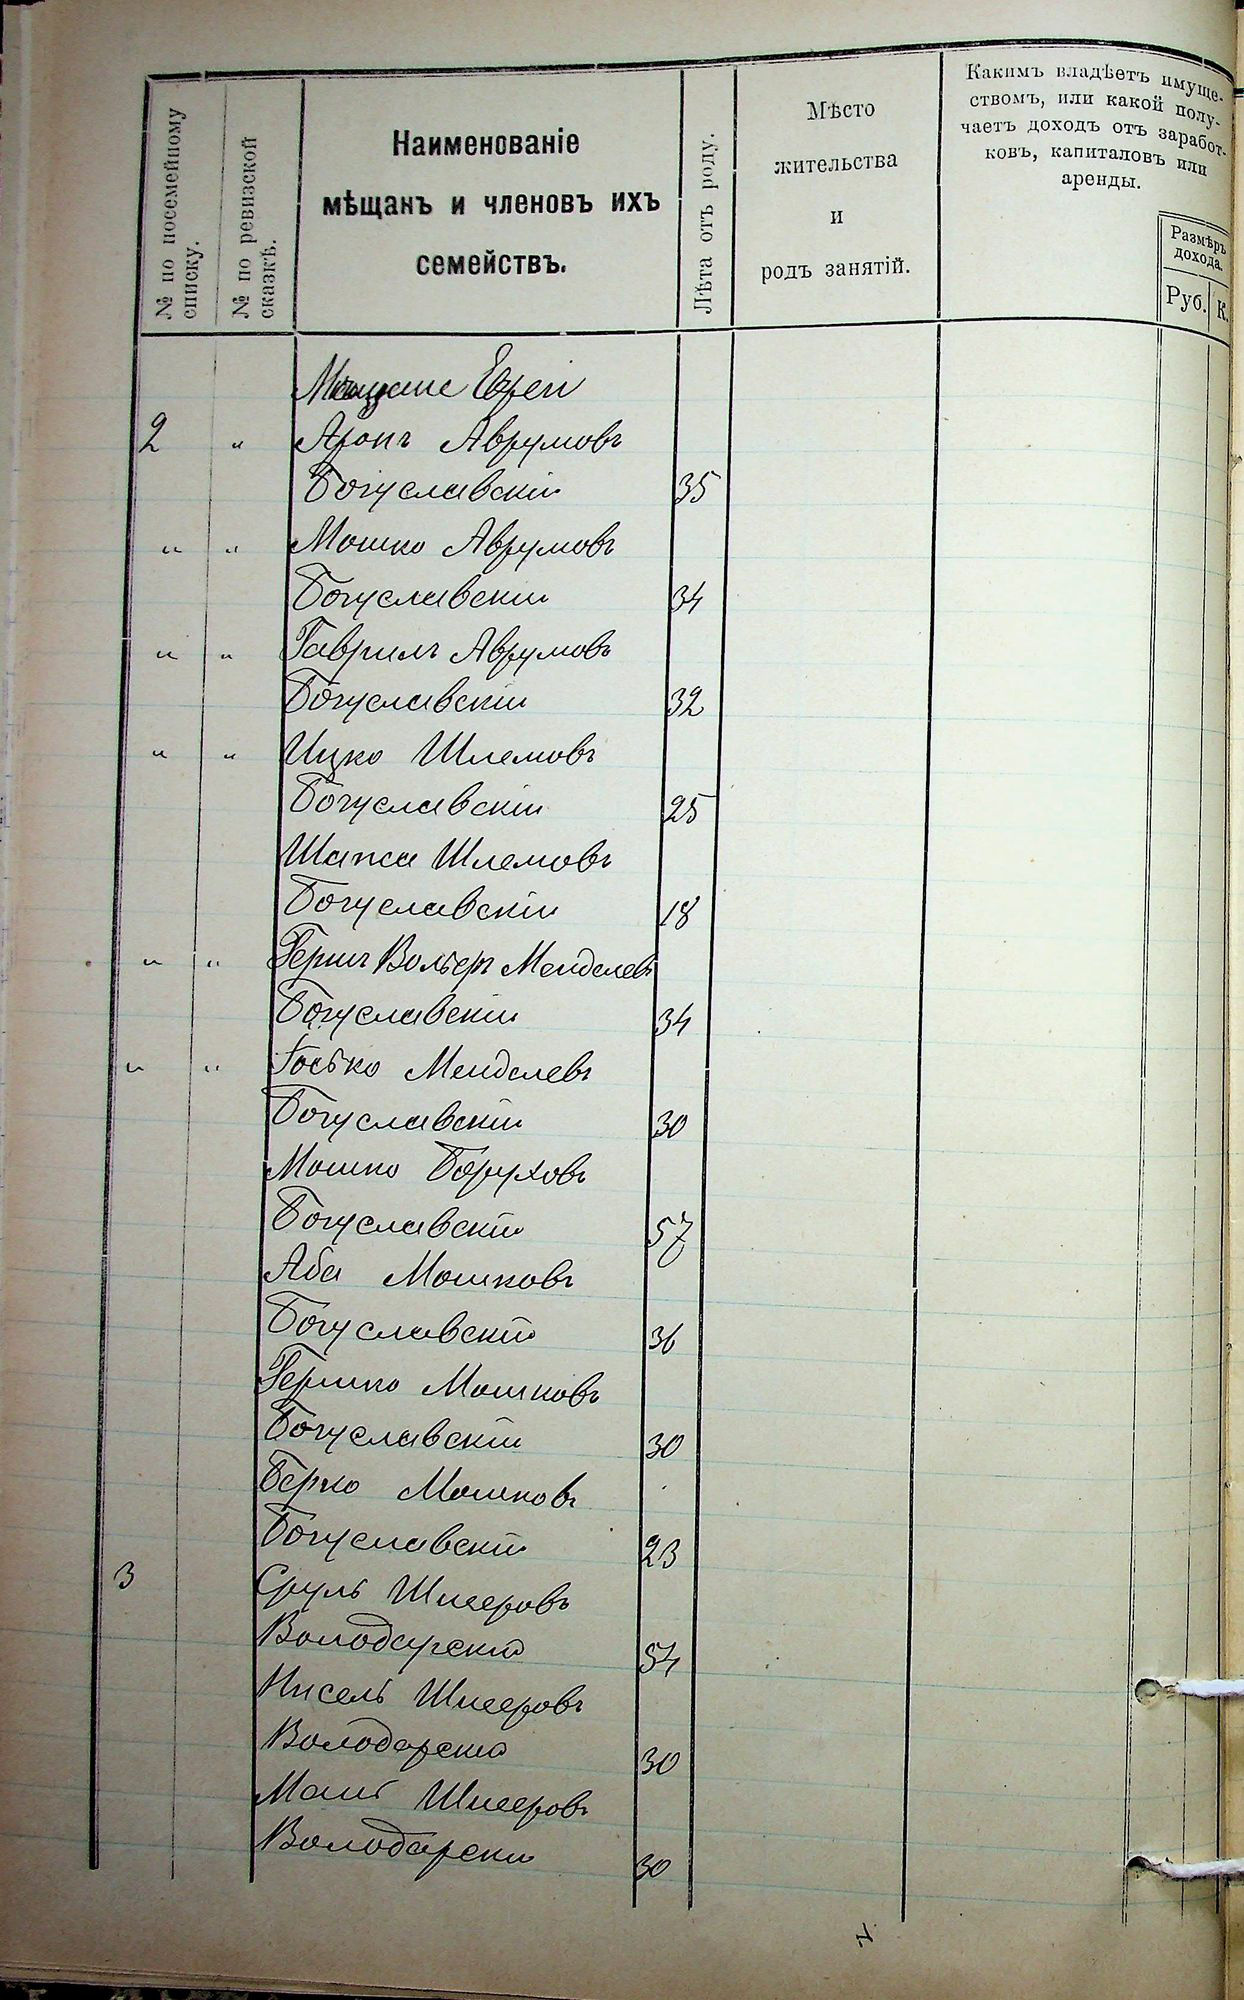 № по посемейному
списку.
№ по ревизской
сказкѣ.
Наименованіе
мѣщанъ и членовъ ихъ
семействъ.
Лѣта отъ роду.
Мѣсто
жительства
и
родъ занятій.
Какимъ владѣетъ имуще-
ствомъ, или какой полу-
чаетъ доходъ отъ заработ-
ковъ, капиталовъ или
аренды.
Размѣръ
дохода.
Руб. К.
Мещане Евреи
2 " Аронъ Аврумовъ
Богуславскій 35
" " Мошко Аврумовъ
Богуславскій 34
" " Гаврилъ Аврумовъ
Богуславскій 32
" " Ицко Шлемовъ
Богуславскій 25
Шапса Шлемовъ
Богуславскій 18
" " Гершъ Вольфъ Менделевъ
Богуславскій 34
" " Іосько Менделевъ
Богуславскій 30
Мошко Боруховъ
Богуславскій 57
Аба Мошковъ
Богуславскій 36
Гершко Мошковъ
Богуславскій 30
Берко Мошковъ
Богуславскій 23
3 Сруль Шмеровъ
Володарскій 54
Нисель Шмеровъ
Володарскій 30
Шмеровъ
Володарскій 30